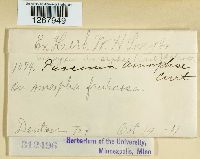 1287949
Ex Herb. W. H. Long
1694. Puccinia amorphae
Curt
On Amorpha fruticosa
Denton Tx Oct 14
312496
Herbarium of the University,
Minneapolis, Minn